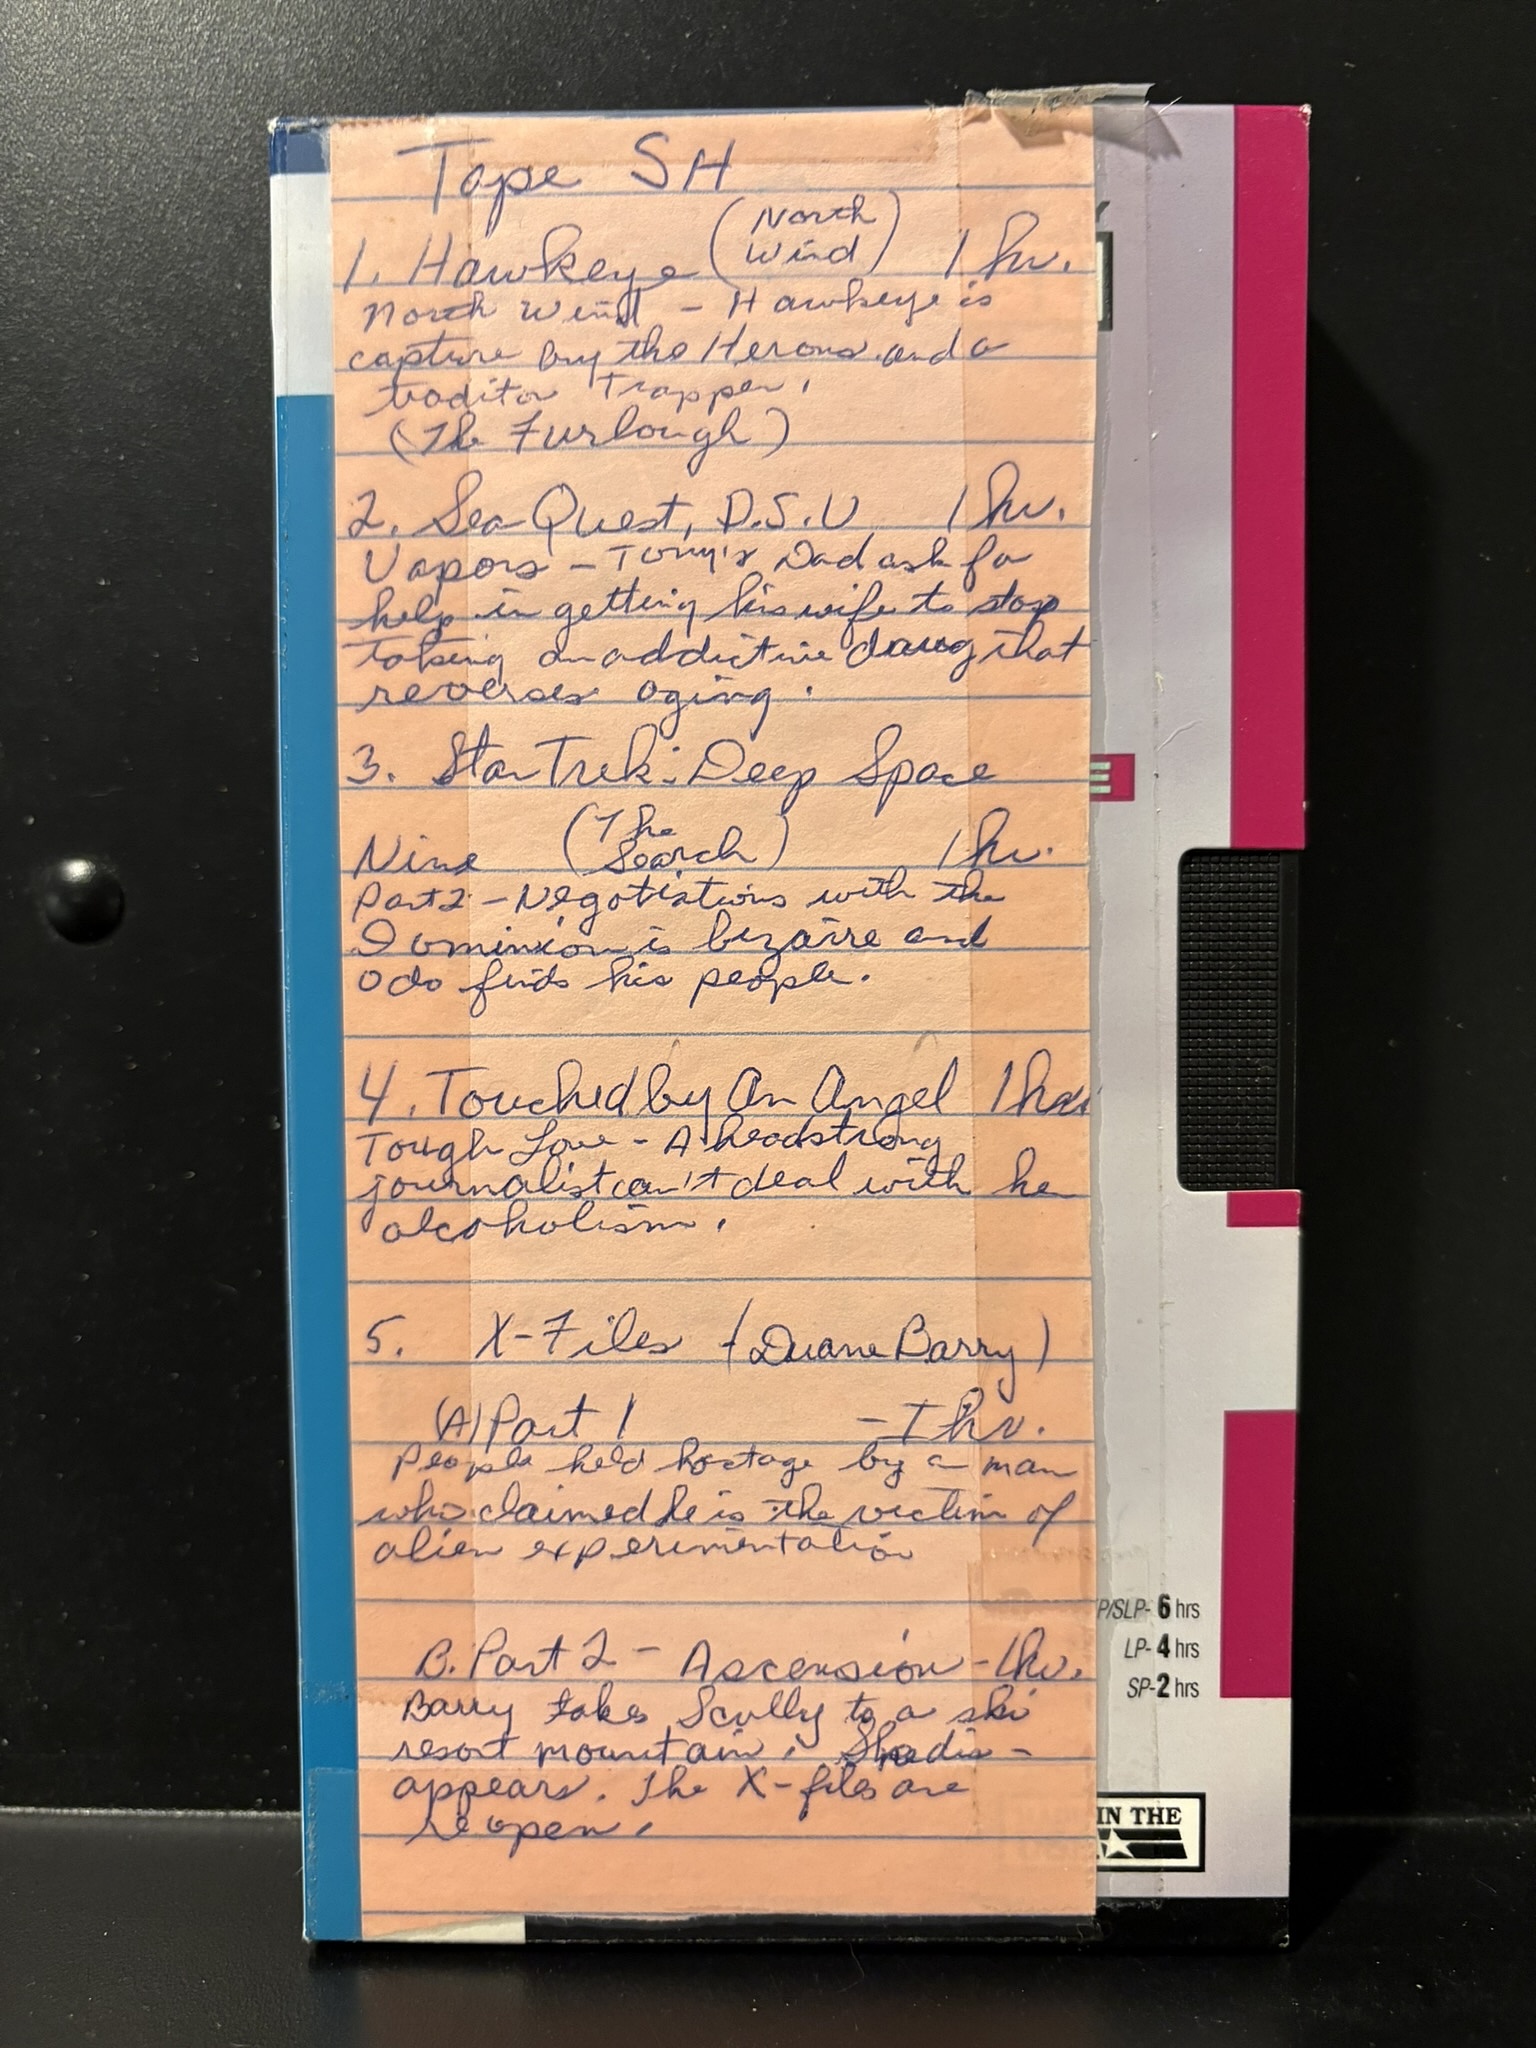 Tape SH
1. Hawkeye (North Wind) 1 hr.
North Wind - Hawkeye is
capture by the Herons and a
traditor Trapper.
(The Furlough)
2. Sea Quest, D.S.V 1 hr.
Vapors - Tony's Dad ask for
help in getting his wife to stop
taking an addictive drug that
reverses aging.
3. Star Trek: Deep Space
Nine (The Search) 1 hr.
Part 2 - Negotiations with the
Dominion is bizarre and
Odo finds his people.
4. Touched by An Angel 1 hr.
Tough Love - A headstrong
journalist can't deal with her
alcoholism.
5. X-Files (Duane Barry)
(A) Part 1 - 1 hr.
People held hostage by a man
who claimed he is the victim of
alien experimentation
B. Part 2 - Ascension - 1 hr.
Barry takes Scully to a ski
resort mountain. She dis-
appears. The X-files are
reopen.
E
P/SLP- 6 hrs
LP- 4 hrs
SP- 2 hrs
IN THE